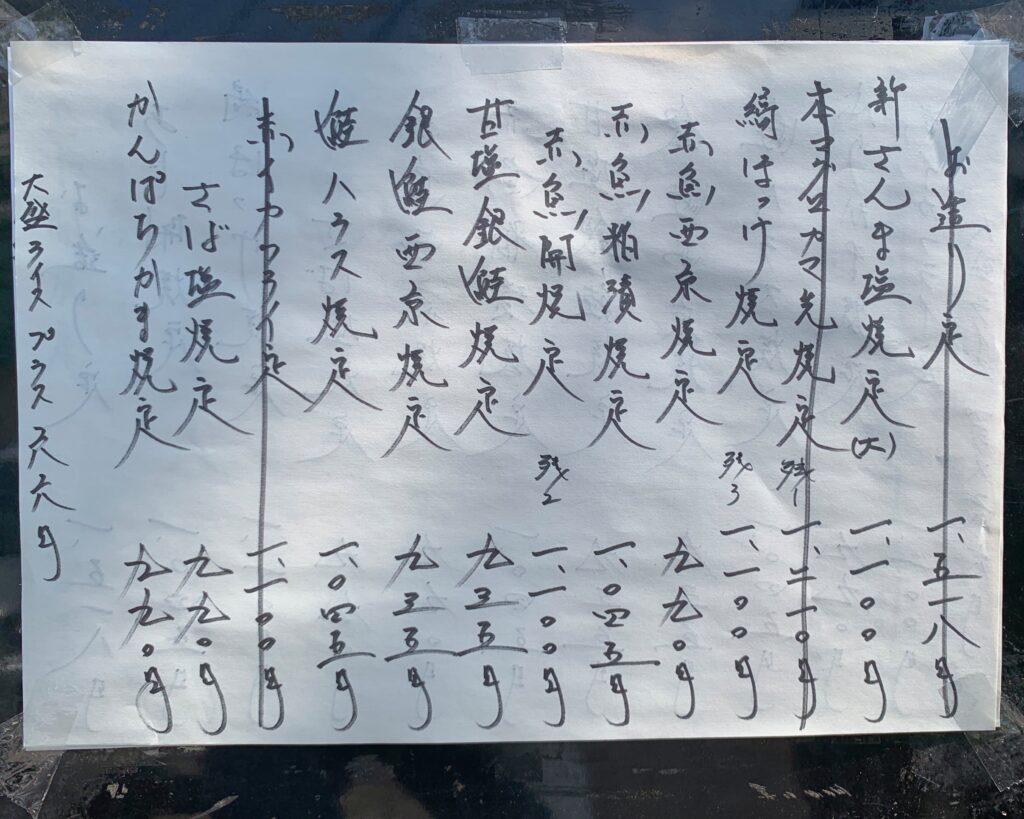 お造り定 一、五一八円
新さんま塩焼定(大) 一、一〇〇円
本マグロカマ先焼定 残1 一、二一〇円
縞ほっけ焼定 残3 一、一〇〇円
赤魚西京焼定 九九〇円
赤魚粕漬焼定 一、〇四五円
赤魚開焼定 残2 一、一〇〇円
甘塩銀鮭焼定 九三五円
銀鮭西京焼定 九三五円
鮭ハラス焼定 一、〇四五円
赤イカフライ定 一、一〇〇円
さば塩焼定 九九〇円
かんぱちかま焼定 九九〇円
大盛ライスプラス六六円